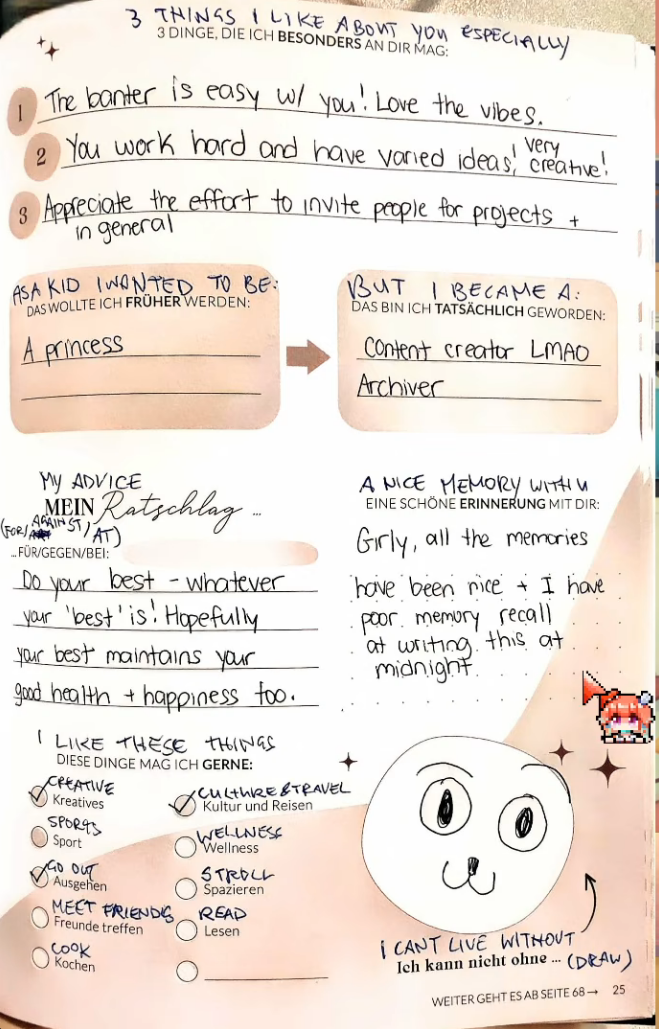 3 THINGS I LIKE ABOUT YOU ESPECIALLY
3 DINGE, DIE ICH BESONDERS AN DIR MAG:
1 The banter is easy w/ you! Love the vibes.
2 You work hard and have varied ideas, very creative!
3 Appreciate the effort to invite people for projects +
in general
AS A KID I WANTED TO BE:
DAS WOLLTE ICH FRÜHER WERDEN:
A princess
BUT I BECAME A:
DAS BIN ICH TATSÄCHLICH GEWORDEN:
Content creator LMAO
Archiver
MY ADVICE
MEIN Ratschlag ...
(FOR/AGAINST/AT)
...FÜR/GEGEN/BEI:
Do your best - whatever
your 'best' is! Hopefully
your best maintains your
good health + happiness too.
A NICE MEMORY WITH U
EINE SCHÖNE ERINNERUNG MIT DIR:
Girly, all the memories
have been nice + I have
poor memory recall
at writing this at
midnight
I LIKE THESE THINGS
DIESE DINGE MAG ICH GERNE:
CREATIVE
Kreatives
SPORTS
Sport
GO OUT
Ausgehen
MEET FRIENDS
Freunde treffen
COOK
Kochen
CULTURE & TRAVEL
Kultur und Reisen
WELLNESS
Wellness
STROLL
Spazieren
READ
Lesen
I CANT LIVE WITHOUT
Ich kann nicht ohne ... (DRAW)
WEITER GEHT ES AB SEITE 68→ 25